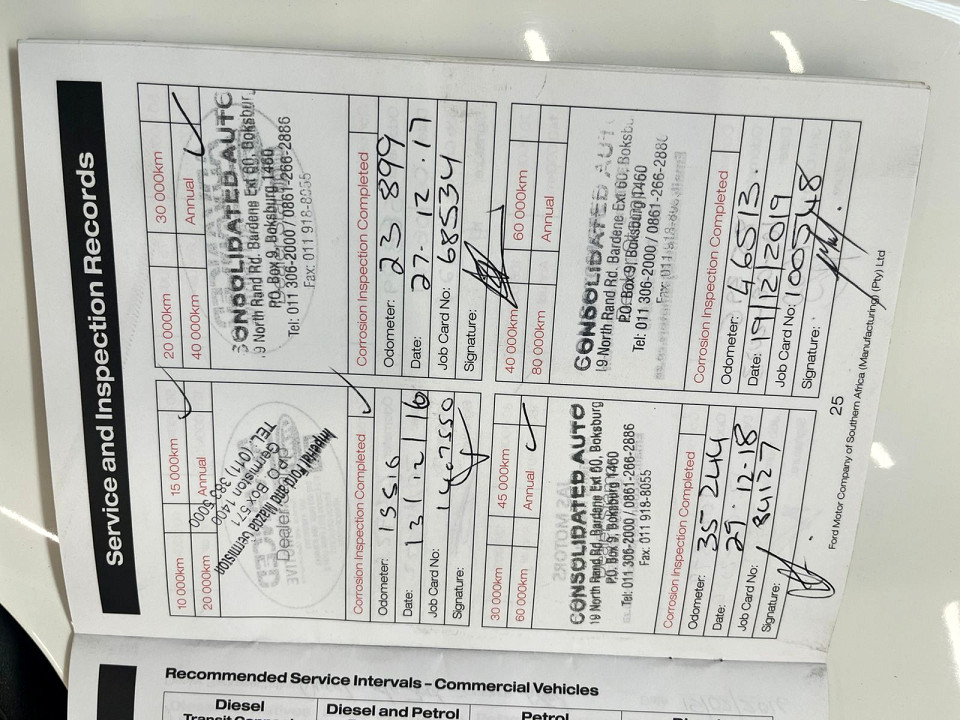 Service and Inspection Records
10 000km
15 000km
20 000km
Annual
Imperial Ford and Mazda Germiston
P.O. Box 571
Germiston 1400
Corrosion Inspection Completed
Odometer: 15516
Date: 13/12/16
Job Card No: 1407550
Signature:
20 000km
30 000km
40 000km
Annual
CONSOLIDATED AUTO
19 North Rand Rd. Bardene Ext 60, Boksburg
P.O. Box 9, Boksburg 1460
Tel: 011 306-2000 / 0861-266-2886
Fax: 011 918-8055
Corrosion Inspection Completed
Odometer: 23 899
Date: 27-12-17
Job Card No: 68534
Signature:
30 000km
45 000km
60 000km
Annual
CONSOLIDATED AUTO
19 North Rand Rd. Bardene Ext 60, Boksburg
P.O. Box 9, Boksburg 1460
Tel: 011 306-2000 / 0861-266-2886
Fax: 011 918-8055
Corrosion Inspection Completed
Odometer: 35 244
Date: 29-12-18
Job Card No: 84127
Signature:
40 000km
60 000km
80 000km
Annual
CONSOLIDATED AUT
19 North Rand Rd. Bardene Ext 60, Boksbu
P.O. Box 9, Boksburg 1460
Tel: 011 306-2000 / 0861-266-288
Corrosion Inspection Completed
Odometer: 46513.
Date: 19/12/2019
Job Card No: 1005748
Signature:
25
Ford Motor Company of Southern Africa (Manufacturing) (Pty) Ltd
Recommended Service Intervals – Commercial Vehicles
Diesel
Diesel and Petrol
Petrol